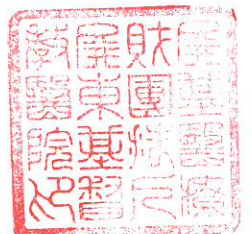 屏基醫療
財團法人
屏東基督
教醫院印